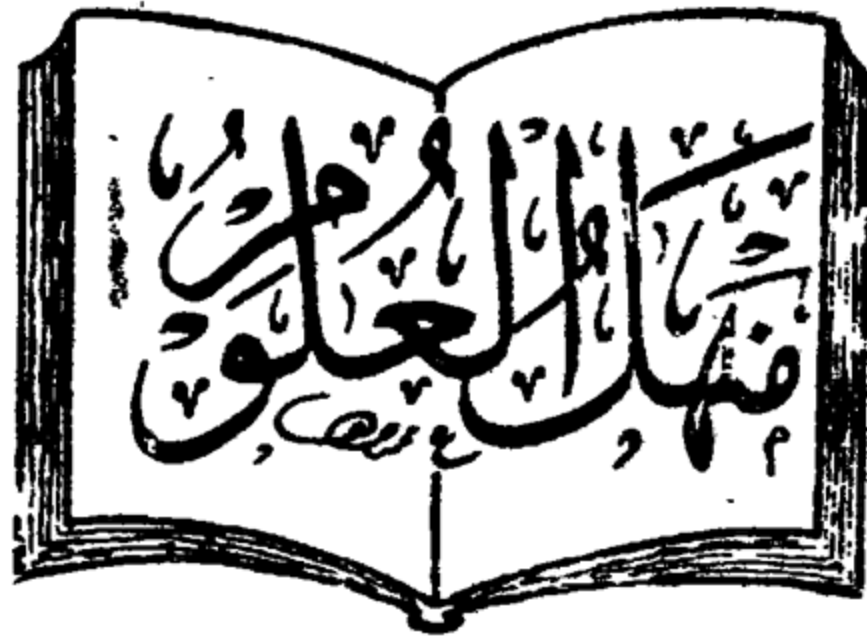 منهل العلوم